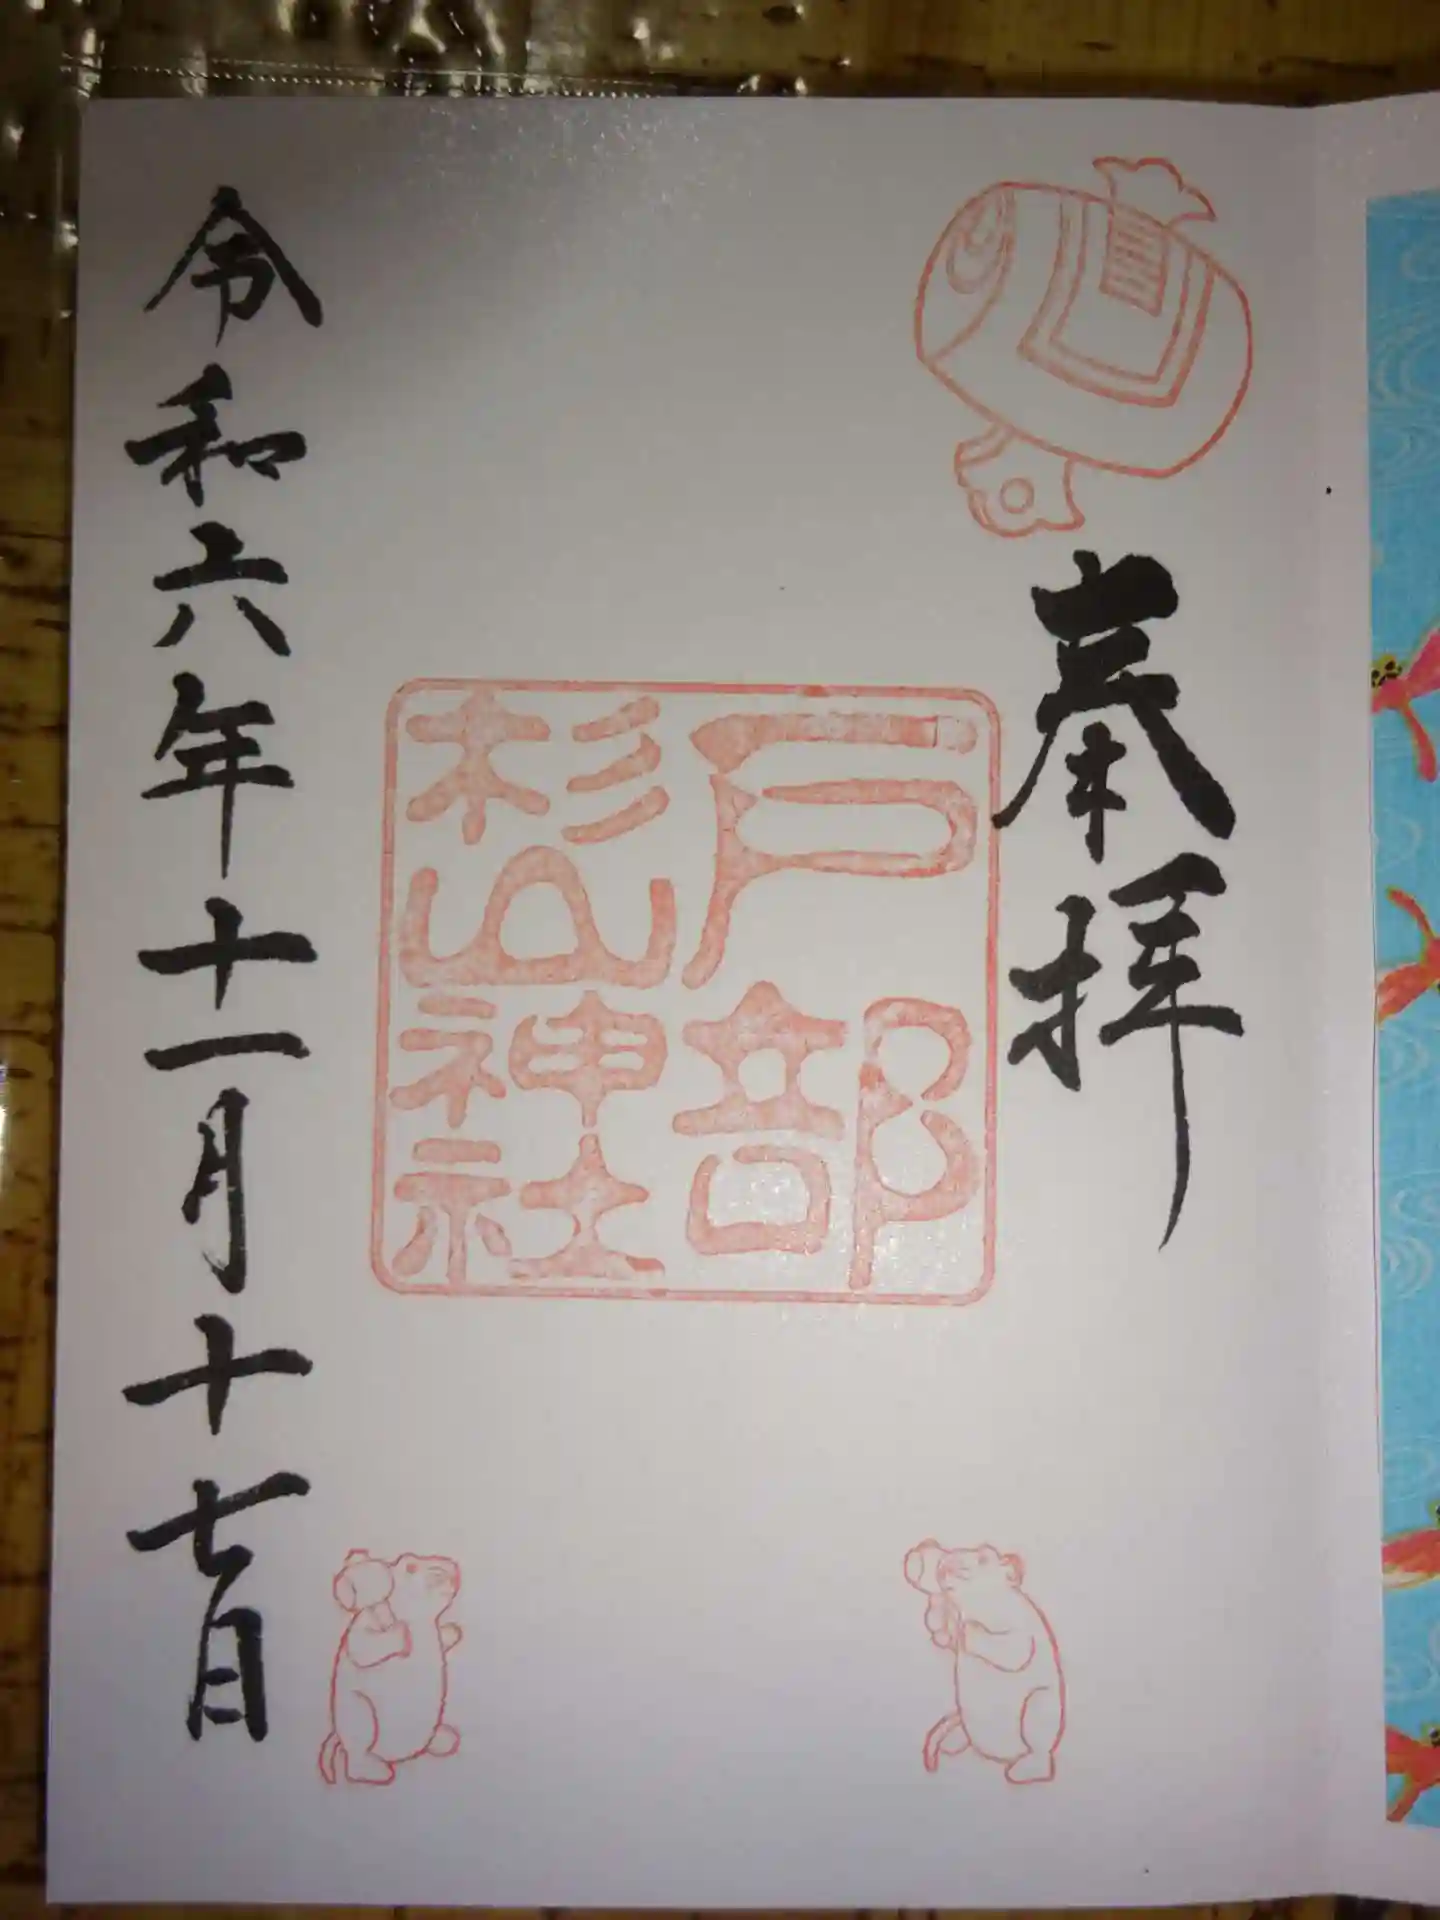 奉拝
戸部
杉山神社
令和六年十一月十七日